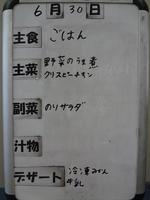 6月30日
主食 ごはん
主菜 野菜のうま煮
クリスピーチキン
副菜 のりサラダ
汁物
デザート 冷凍みかん
牛乳